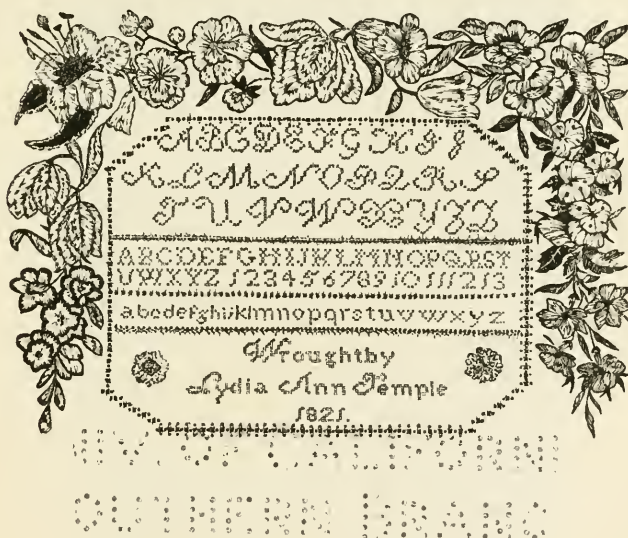 A B C D E F G H I J
K L M N O P Q R S
T U V W X Y Z
ABCDEFGHIJKLMNOPQRST
UVWXYZ 12345678910111213
abcdefghijklmnopqrstuvwxyz
Wroughtby
Lydia Ann Temple
1821.
ITY OF CALIFORNI
OUTHERN BRANC